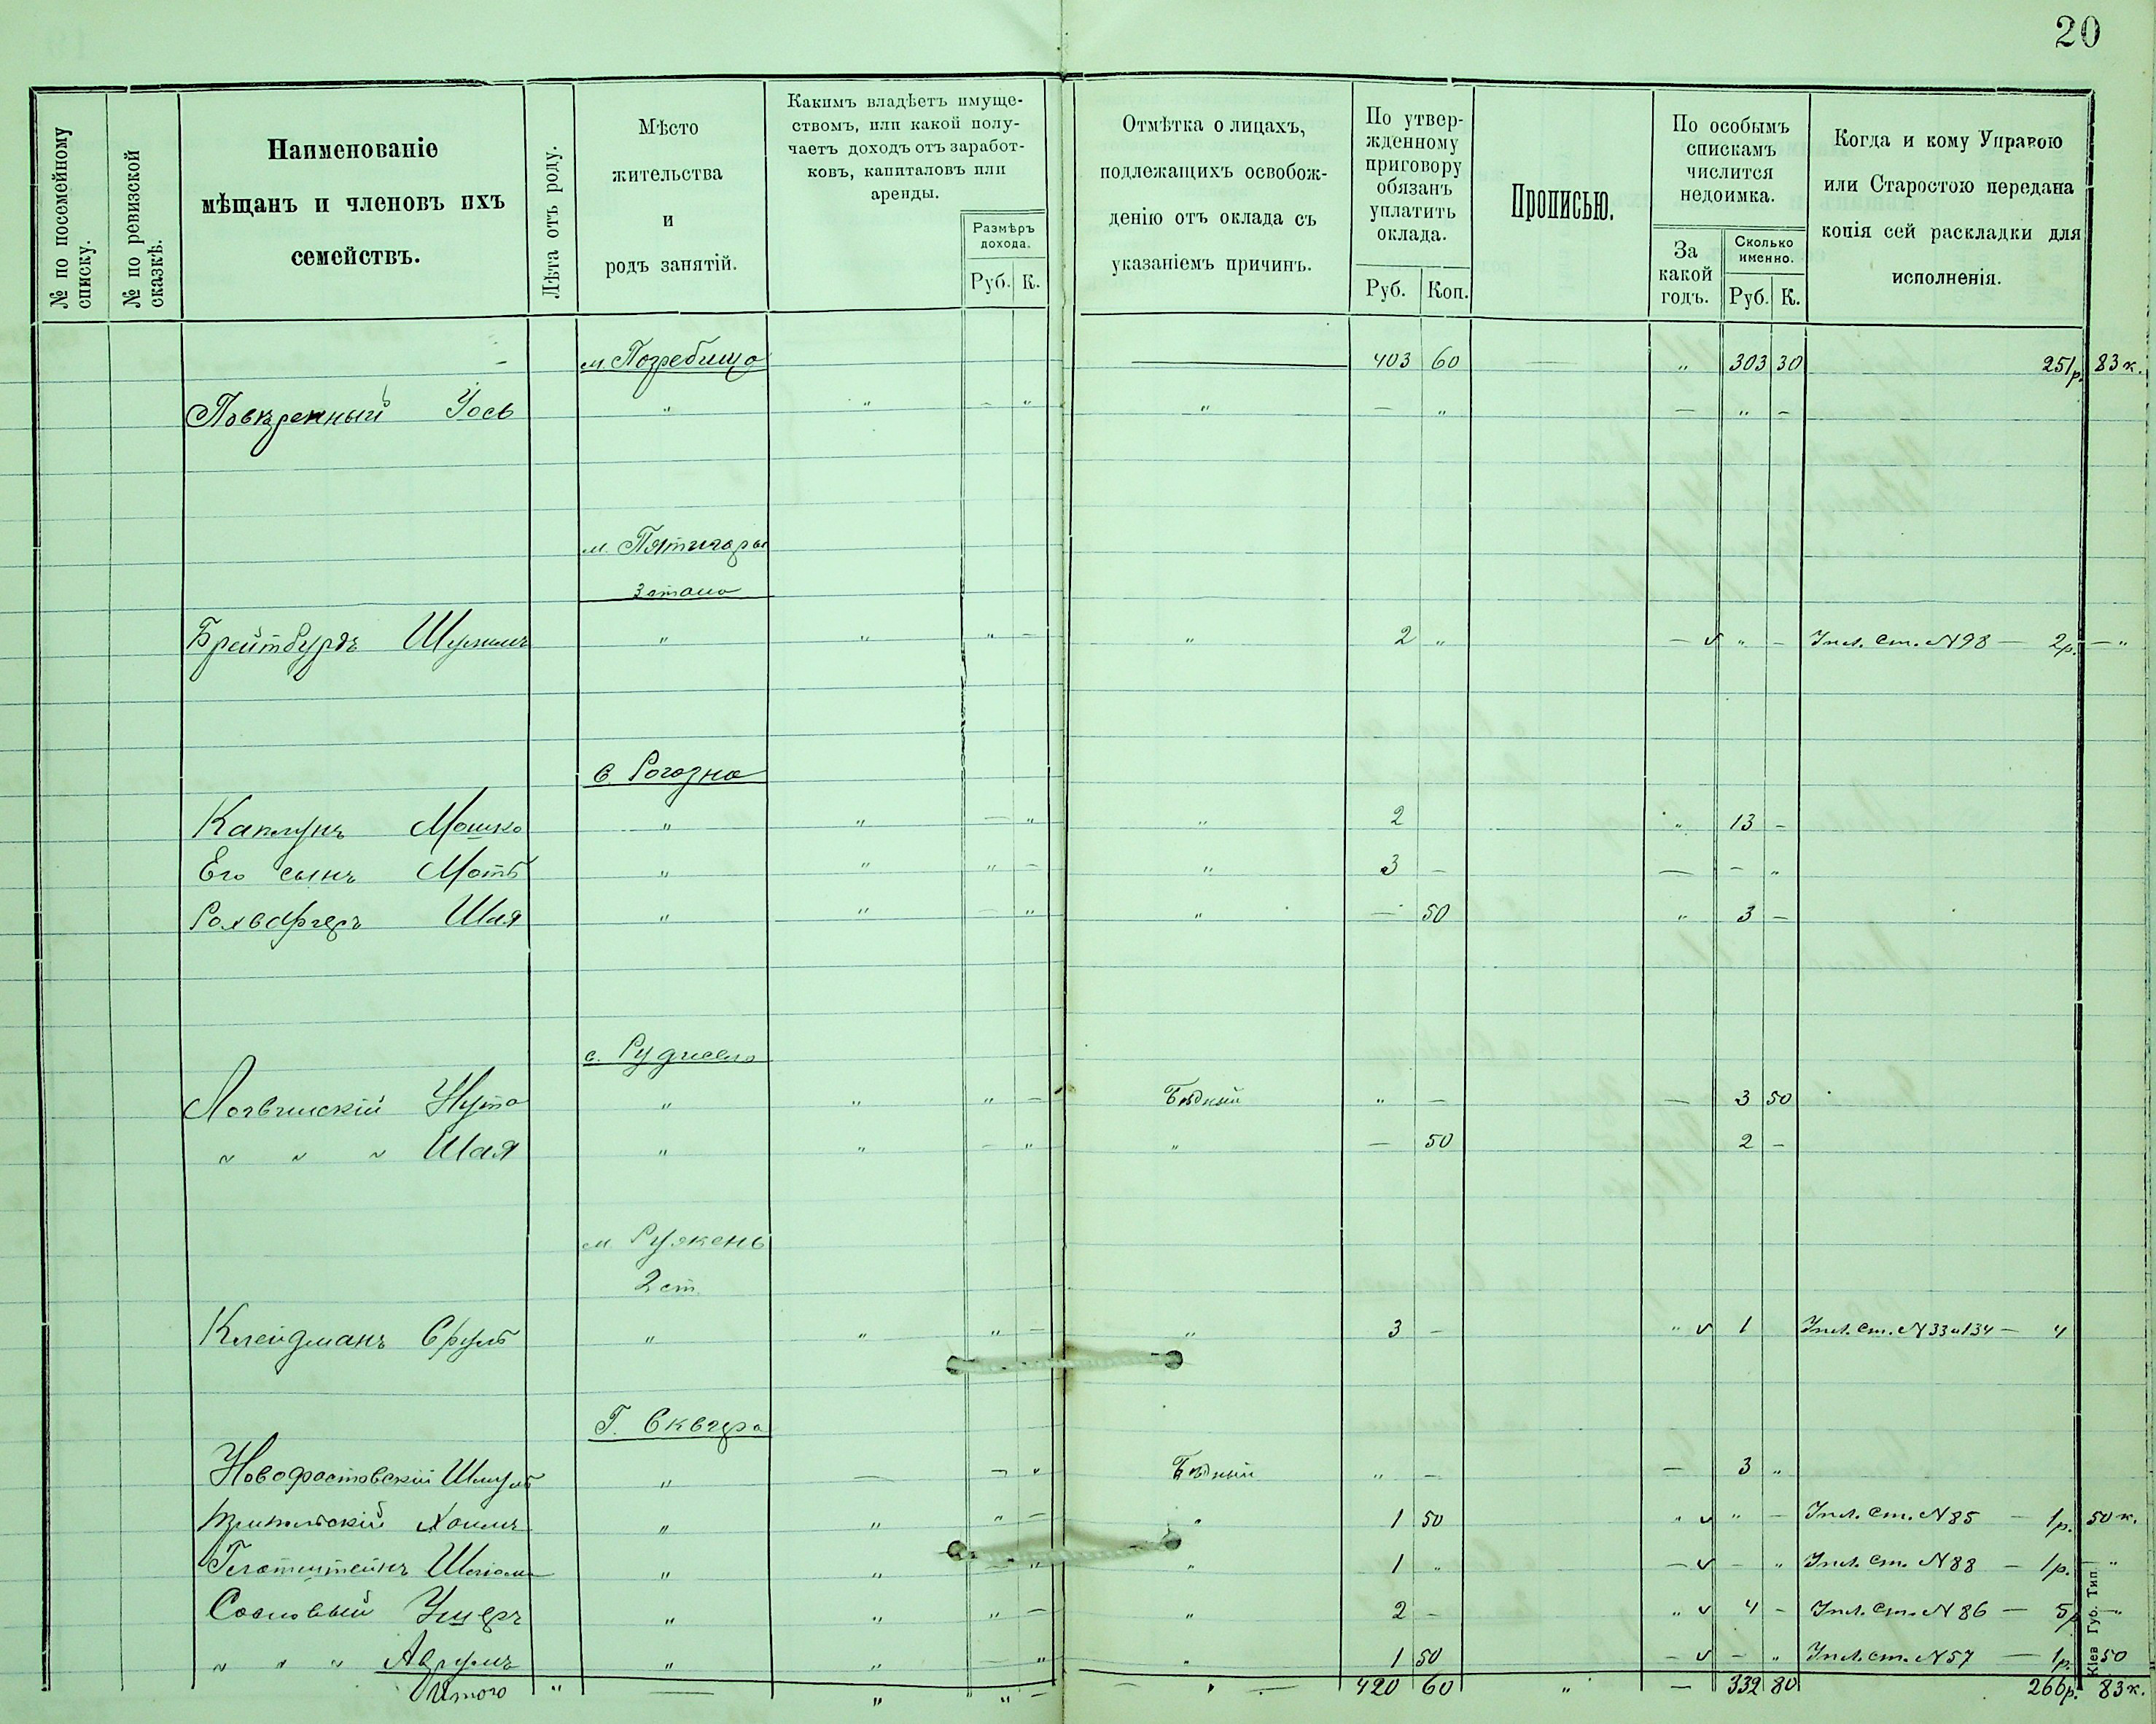 20
№ по посемейному списку.
№ по ревизской сказкѣ.
Наименованіе мѣщанъ и членовъ ихъ семействъ.
Лѣта отъ роду.
Мѣсто жительства и родъ занятій.
Какимъ владѣетъ имуществомъ, или какой получаетъ доходъ отъ заработковъ, капиталовъ или аренды.
Размѣръ дохода.
Руб. К.
Отмѣтка о лицахъ, подлежащихъ освобожденію отъ оклада съ указаніемъ причинъ.
По утвержденному приговору обязанъ уплатить оклада.
Руб. Коп.
Прописью.
По особымъ спискамъ числится недоимка.
За какой годъ.
Сколько именно.
Руб. К.
Когда и кому Управою или Старостою передана копія сей раскладки для исполненія.
м. Погребища — 403 60 — „ 303 30 251 р. 83 к.
Іось „ „ — „ „ — „ — „ —
м. Пятигоры
3 стана
Брейтбурдъ „ „ „ — „ 2 „ — v „ — № 98 — 2 р. — „
С. Рогозна
Каплунъ Мошко „ „ — „ „ 2 „ 13 —
Его сынъ Моть „ „ „ — „ 3 — — — „
Шая „ „ — „ „ — 50 „ 3 —
с. Рудисело
Логвинскій Нута „ „ „ — Бѣдный „ — — 3 50
„ „ „ Шая „ „ — „ „ — 50 2 —
м. Ружень
2 ст.
Клейдманъ Сруль „ „ „ — „ 3 — „ v 1 № 33 и 134 — 4
Г. Сквира
Новофастовскій Шмуль „ — — „ Бѣдный „ — — 3 „
Хаимъ „ „ „ — „ 1 50 „ v „ — № 85 — 1 р. 50 к.
„ „ — „ „ 1 „ — v — „ № 88 — 1 р. — „
Сосновый Ушеръ „ „ „ — „ 2 — „ v 4 — № 86 — 5 р. — „
„ „ „ Аврумъ „ „ — „ „ 1 50 — v — „ № 57 — 1 р. 50
Итого „ — „ „ — — „ — 420 60 „ — 332 80 266 р. 83 к.
Кіев Губ. Тип.